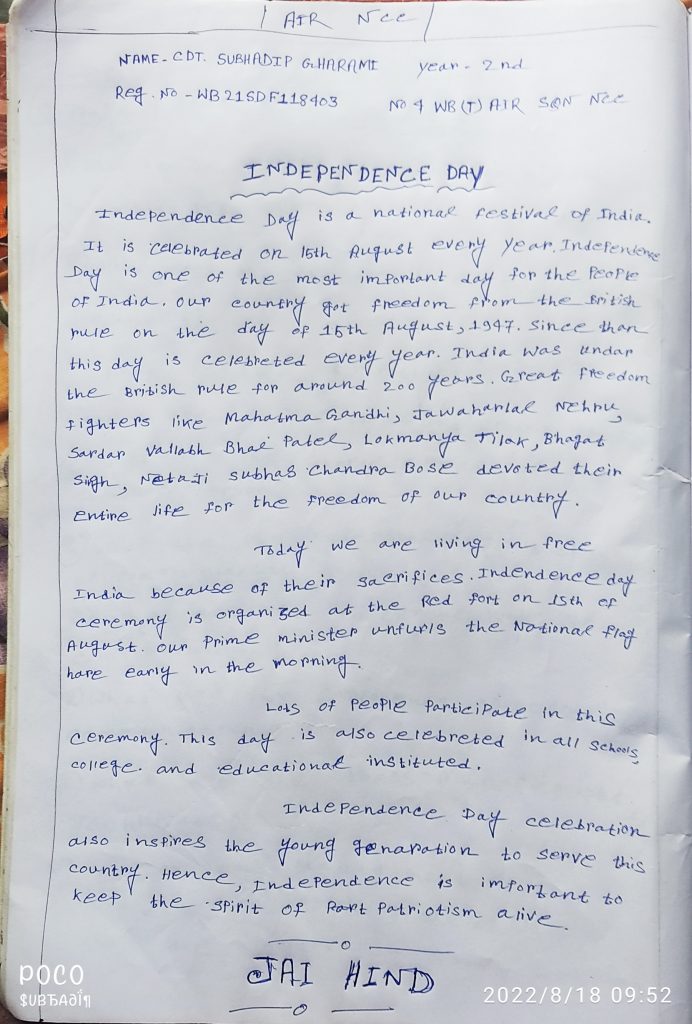 AIR NCC
NAME - CDT. SUBHADIP GHARAMI year - 2nd
Reg. No - WB21SDF118403 No 4 WB(T) AIR SQN NCC
INDEPENDENCE DAY
Independence Day is a national festival of India.
It is celebrated on 15th August every year. Indefendence
Day is one of the most important day for the People
of India. our country got freedom from the British
rule on the day of 15th August, 1947. Since than
this day is celebreted every year. India was undar
the British rule for around 200 years. Great freedom
fighters like Mahatma Gandhi, Jawaharlal Nehru,
Sardar Vallabh Bhai Patel, Lokmanya Tilak, Bhagat
Sigh, Netaji subhas Chandra Bose devoted their
entire life for the freedom of our country.
Today we are living in free
India because of their sacrifices. Indendence day
ceremony is organized at the Red fort on 15th of
August. our Prime minister unfurls the National flag
hare early in the morning.
Lots of People Participate in this
ceremony. This day is also celebreted in all schools,
college. and educational instituted.
Independence Day celebration
also inspires the young genaration to serve this
country. Hence, Independence is important to
keep the spirit of Part Patriotism alive.
JAI HIND
POCO
SUBHADIP
2022/8/18 09:52